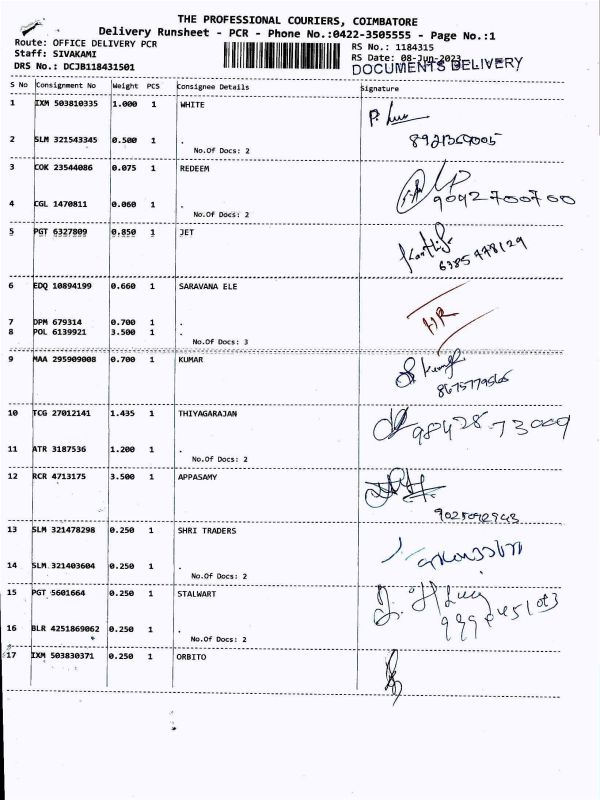 THE PROFESSIONAL COURIERS, COIMBATORE
Delivery Runsheet - PCR - Phone No.:0422-3505555 - Page No.:1
Route: OFFICE DELIVERY PCR
RS No.: 1184315
Staff: SIVAKAMI
RS Date: 08-Jun-2023
DRS No.: DCJB118431501
DOCUMENTS DELIVERY
S No Consignment No Weight PCS Consignee Details Signature
1 IXM 503810335 1.000 1 WHITE
2 SLM 321543345 0.500 1 .
No.Of Docs: 2
3 COK 23544086 0.075 1 REDEEM
4 CGL 1470811 0.060 1 .
9092700700
No.Of Docs: 2
5 PGT 6327809 0.850 1 JET
6385478129
6 EDQ 10894199 0.660 1 SARAVANA ELE
7 DPM 679314 0.700 1 .
8 POL 6139921 3.500 1 .
No.Of Docs: 3
9 MAA 295909008 0.700 1 KUMAR
10 TCG 27012141 1.435 1 THIYAGARAJAN
98428 73009
11 ATR 3187536 1.200 1 .
No.Of Docs: 2
12 RCR 4713175 3.500 1 APPASAMY
13 SLM 321478298 0.250 1 SHRI TRADERS
14 SLM 321403604 0.250 1 .
No.Of Docs: 2
15 PGT 5601664 0.250 1 STALWART
16 BLR 4251869062 0.250 1 .
No.Of Docs: 2
17 IXM 503830371 0.250 1 ORBITO